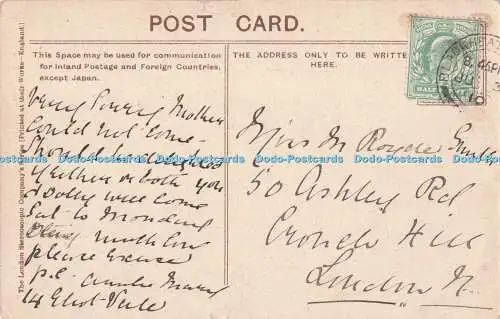 POST CARD.
This Space may be used for communication
for Inland Postage and Foreign Countries,
except Japan.
THE ADDRESS ONLY TO BE WRITTEN
HERE.
The London Stereoscopic Company's Series (Printed at their Works—England.)
HALF
Very Sorry Mother
Could not Come
Should be delighted
if either or both you
& Dolly will come
Sat to Monday
much love
please excuse
p.c. Auntie
14 Eliot Vale
Miss M Royce
50 Ashley Rd
Crouch Hill
London N.
Dodo-Postcards Dodo-Postcards Dodo-Postcards Dodo-Postcards Dodo-Postcards